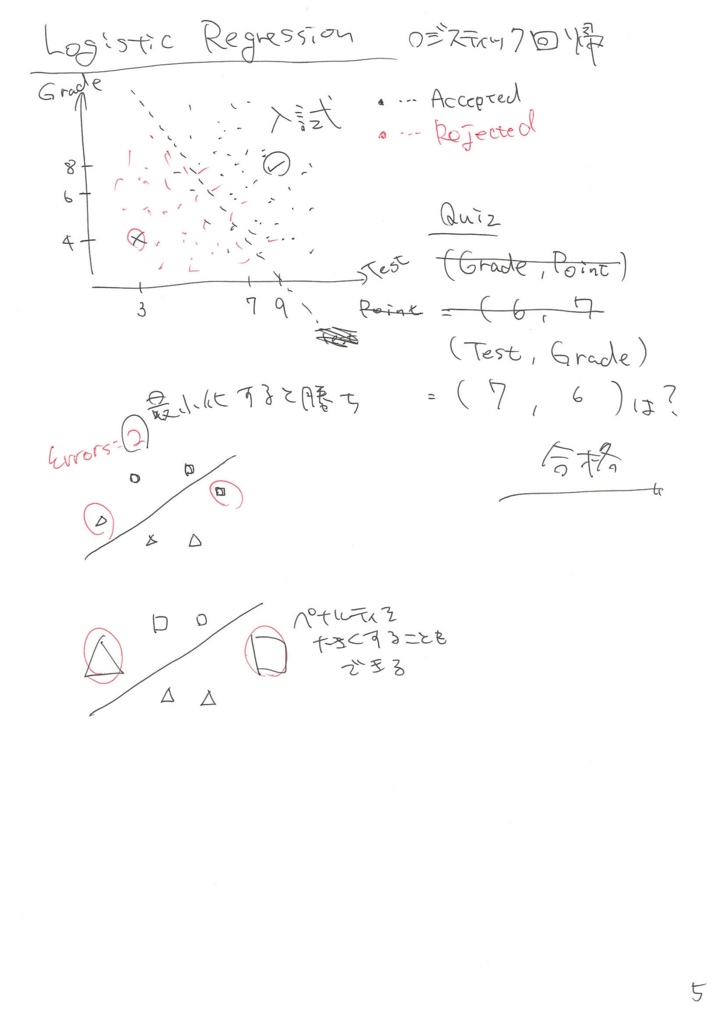 Logistic Regression ロジスティック回帰
Grade
入試
・… Accepted
・… Rejected
8
6
4
3 7 9
Test
Point
Quiz
(Grade, Point)
= ( 6, 7
(Test, Grade)
= ( 7, 6 ) は?
合格
最小化すると勝ち
Errors=2
ペナルティを
大きくすることも
できる
5